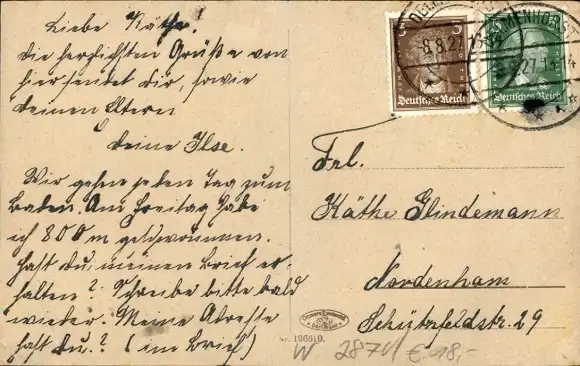 Liebe Käthe!
Die herzlichsten Grüße von
hier sendet dir, sowie
deinen Eltern
Deine Ilse.
Wir gehen jeden Tag zum
Baden. Am Freitag habe
ich 800 m geschwommen.
Hast du meinen Brief er-
halten? Schreibe bitte bald
wieder. Meine Adresse
hast du? (im Brief)
DELMENHORST
-8.8.27.13-14
3
Deutsches Reich
Deutsches Reich
Frl.
Käthe Glindemann
Nordenham
Schützfeldstr. 29
Nr. 196610.
W 2874 € 18,-